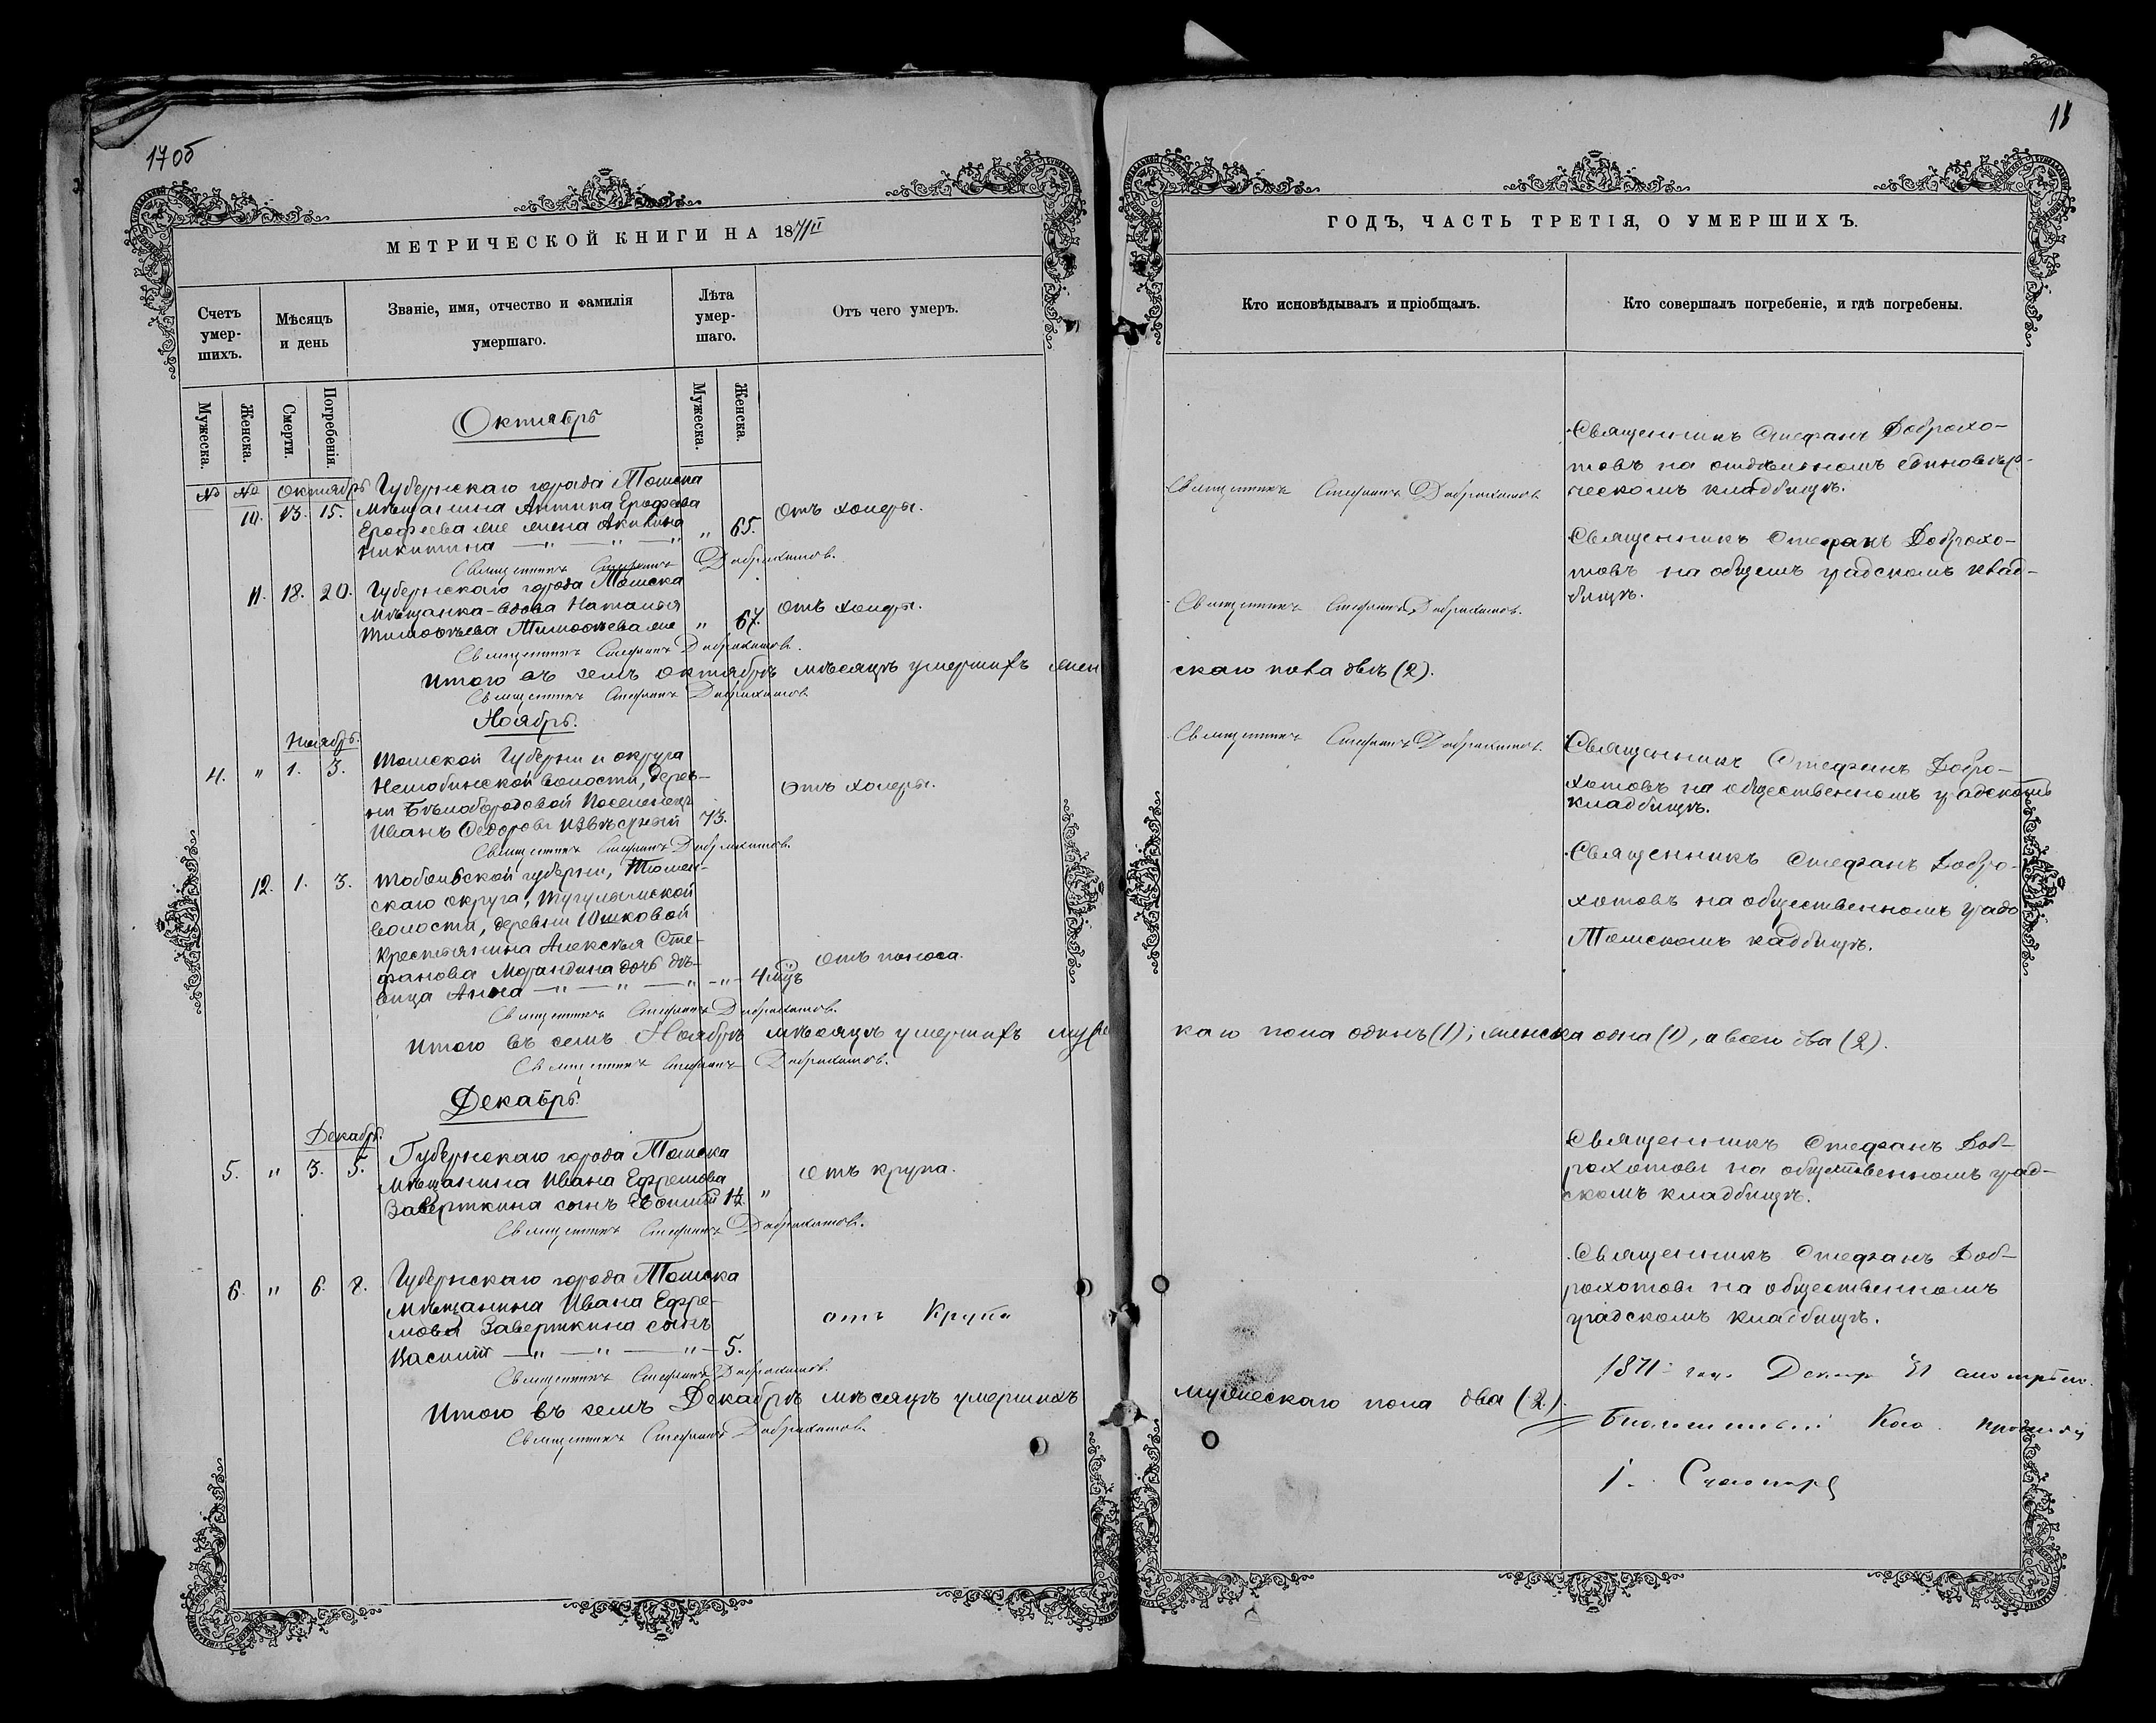 17 об
МЕТРИЧЕСКОЙ КНИГИ НА 18
Счетъ умер-шихъ.
Мѣсяцъ и день
Званіе, имя, отчество и фамилія умершаго.
Лѣта умер-шаго.
Отъ чего умеръ.
Мужеска.
Женска.
Смерти.
Погребенія.
Мужеска.
Женска.
Октябрь
№ № Октябрь Губернскаго города Томска
10. 13. 15. Мѣщанина Антипа Ерофеева
Ерофеева же жена Акилина " 65. Отъ холеры.
Никитина — " — " — "
Священникъ Стефанъ Доброхотовъ.
11. 18. 20. Губернскаго города Томска
Мѣщанка-вдова Наталья отъ холеры.
Тимоѳѣева Тимоѳѣева же " 67.
Священникъ Стефанъ Доброхотовъ.
Итого въ семъ октябрѣ мѣсяцѣ умершихъ жен
Священникъ Стефанъ Доброхотовъ
Ноябрь.
Ноябрь.
4. " 1. 3. Томской Губерніи и округа
Нелюбинской волости, дерев-
ни Бѣлобородовой Поселенецъ отъ холеры.
Иванъ Федоровъ 73.
Священникъ Стефанъ Доброхотовъ.
12. 1. 3. Тобольской губерніи, Тюмен-
скаго округа, Тугулымской
волости, деревни Юшковой
Крестьянина Алексѣя Сте-
фанова дочь дѣ- отъ поноса.
вица Анна — " — " — " - " - 4 мцъ
Священникъ Стефанъ Доброхотовъ.
Итого въ семъ Ноябрѣ мѣсяцѣ умершихъ муже
Священникъ Стефанъ Доброхотовъ.
Декабрь
Декабрь.
5. " 3. 5. Губернскаго города Томска
Мѣщанина Ивана Ефремова отъ крупа.
Заверткина сынъ 1½. "
Священникъ Стефанъ Доброхотовъ.
6. " 6. 8. Губернскаго города Томска
Мѣщанина Ивана Ефре-
мова Заверткина сынъ отъ Крупа
— " — " — " — 5.
Священникъ Стефанъ Доброхотовъ.
Итого въ семъ Декабрѣ мѣсяцѣ умершихъ
Священникъ Стефанъ Доброхотовъ.
18
ГОДЪ, ЧАСТЬ ТРЕТІЯ, О УМЕРШИХЪ.
Кто исповѣдывалъ и пріобщалъ.
Кто совершалъ погребеніе, и гдѣ погребены.
Священникъ Стефанъ Доброхотовъ
Священникъ Стефанъ Доброхо-
товъ на отдѣльномъ единовѣр-
ческомъ кладбищѣ.
Священникъ Стефанъ Доброхотовъ.
Священникъ Стефанъ Доброхо-
товъ на общемъ градскомъ клад-
бищѣ.
скаго пола двѣ (2).
Священникъ Стефанъ Доброхотовъ.
Священникъ Стефанъ Добро-
хотовъ на общественномъ градскомъ
кладбищѣ.
Священникъ Стефанъ Добро-
хотовъ на общественномъ градо
Томскомъ кадбищѣ.
каго пола одинъ (1); женска одна (1), а всего два (2).
Священникъ Стефанъ Доб-
рохотовъ на общественномъ град-
скомъ кладбищѣ.
Священникъ Стефанъ Доб-
рохотовъ на общественномъ
градскомъ кладбищѣ.
мужескаго пола два (2).
1871